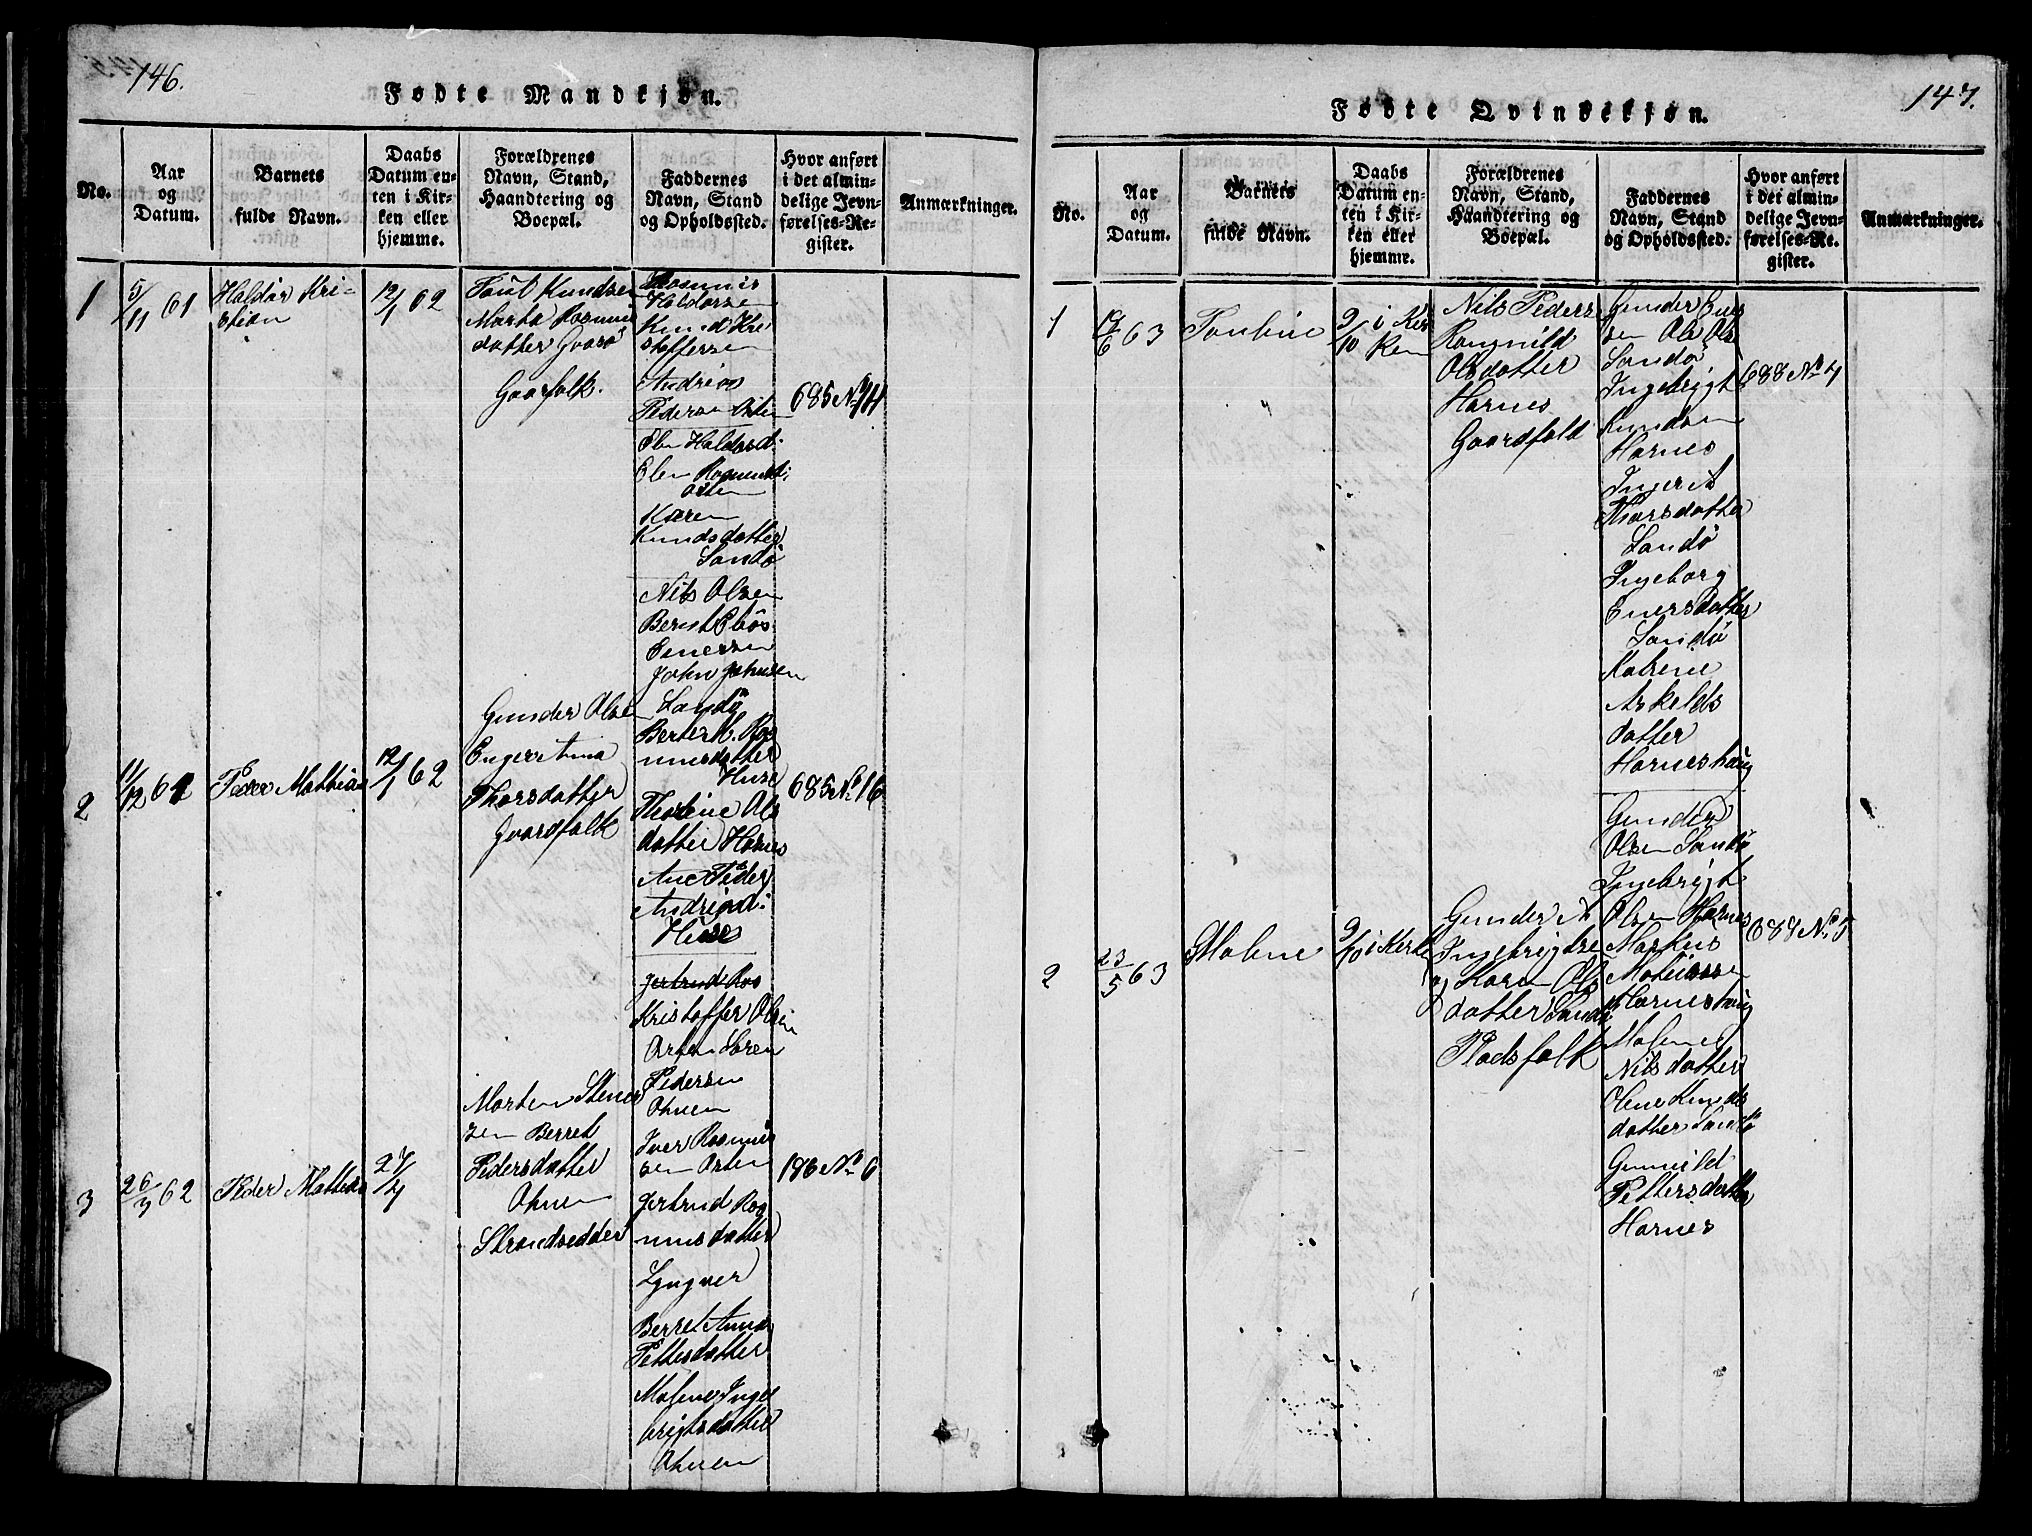 146.
Fødte Mandkjøn.
No.
Aar
og
Datum.
Barnets
fulde Navn.
Daabs
Datum en-
ten i Kir-
ken eller
hjemme.
Forældrenes
Navn, Stand,
Haandtering og
Boepæl.
Faddernes
Navn, Stand
og Opholdssted.
Hvor anført
i det almin-
delige Jevn-
førelses-Re-
gister.
Anmærkninger.
1
5/11 61
Haldor Kri-
stian
12/1 62
Knudsen
Marta Rasmus
datter
Gaarfolk.
Rasmus
Haldorsen
Knud Kri
stoffersen
Andrias
Pedersen Orten
Elen Haldord:
Elen Rasmusd:
Orten
Karen
Knudsdatter
Sandö
685 No 14
2
11/12 61
Peder Mathias
12/1 62
Gunder Olsen
Anna
Thorsdatter
Gaardfolk
Nils Olsen
Bernt
Enersen
John Johnsen
Sandö
Ras
musdatter
Huse
Ols
datter Harnes
Ane Peder
Andriasd:
Huse
685 No 16
3
26/3 62
Peder Mathias
27/4
Morten Stener
sen Berret
Pedersdatter
Ohnen
Strandsedder
Jertrud Ras
Kristoffer Olsen
Orten Søren
Pedersen
Ohnen
Iver Rasmus
sen Orten
Jertrud Ras
musdatter
Lyngver
Berret Anna
Pettersdatter
Malene Inge
brigtsdatter
Ohnen
186 No 6
147.
Fødte Qvindekjøn.
No.
Aar
og
Datum.
Barnets
fulde Navn.
Daabs
Datum en-
ten i Kir-
ken eller
hjemme.
Forældrenes
Navn, Stand,
Haandtering og
Boepæl.
Faddernes
Navn, Stand
og Opholdssted.
Hvor anført
i det almin-
delige Jevn-
førelses-Re-
gister.
Anmærkninger.
1
63
9/10 i Kir
ken
Nils Peders
Rangnild
Olsdatter
Harnes
Gaardfold
Gunder Ener
sen Ole Ols
Sandö
Ingebrigt
Knudsen
Harnes
Ingerit
Thorsdatter
Sandö
Ingeborg
Enersdatter
Sandö
Katrine
Askelds
datter
Harneshaug
688 No 4
2
23/5 63
Malene
9/10 i Kerke
Gunder
Ingebrigtse
og Karen Ols
datter Sandö
Pladsfolk
Gunder
Olsen Sandö
Ingebrigt
Olsen Harnes
Markus
Matiassen
Harneshaug
Malene
Nilsdatter
Olene Knuds
datter Sandö
Gunnild
Pettersdatter
Harnes
688 No 5